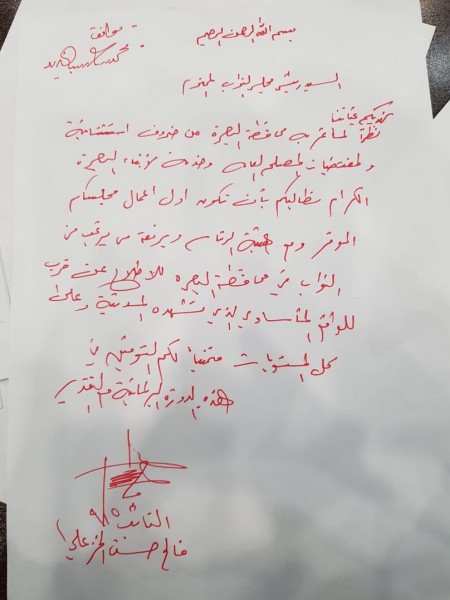 بسم الله الرحمن الرحيم
موافق
محمد
السيد رئيس مجلس النواب المحترم
نهديكم تحياتنا
نظراً لما تمر به محافظة البصرة من ضروف استثنائية
ولمقتضيات المصلحه العامه وخدمة لأبناء البصرة
الكرام نطالبكم بأن تكون اول اعمال مجلسكم
الموقر ومع هيئة الرئاسه وبرفقة من يرغب من
النواب في محافظة البصره للاطلاع عن قرب
للواقع المأساوي الذي تشهده المدينة وعلى
كل المستويات متمنياً لكم التوفيق في
هذه الدورة البرلمانية مع التقدير
النائب
فالح حسن الخزعلي
٩/٥